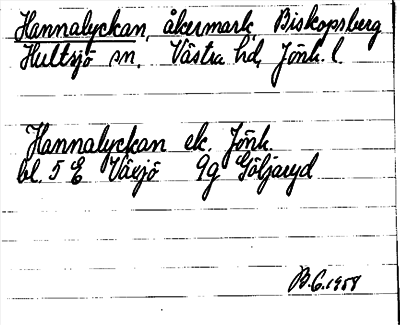 Hannalyckan, åkermark, Biskopsberg
Hultsjö sn, Västra hd, Jönk. l.
Hannalyckan ek. Jönk.
bl. 5 E Växjö 9g Göljaryd
B.G. 1958